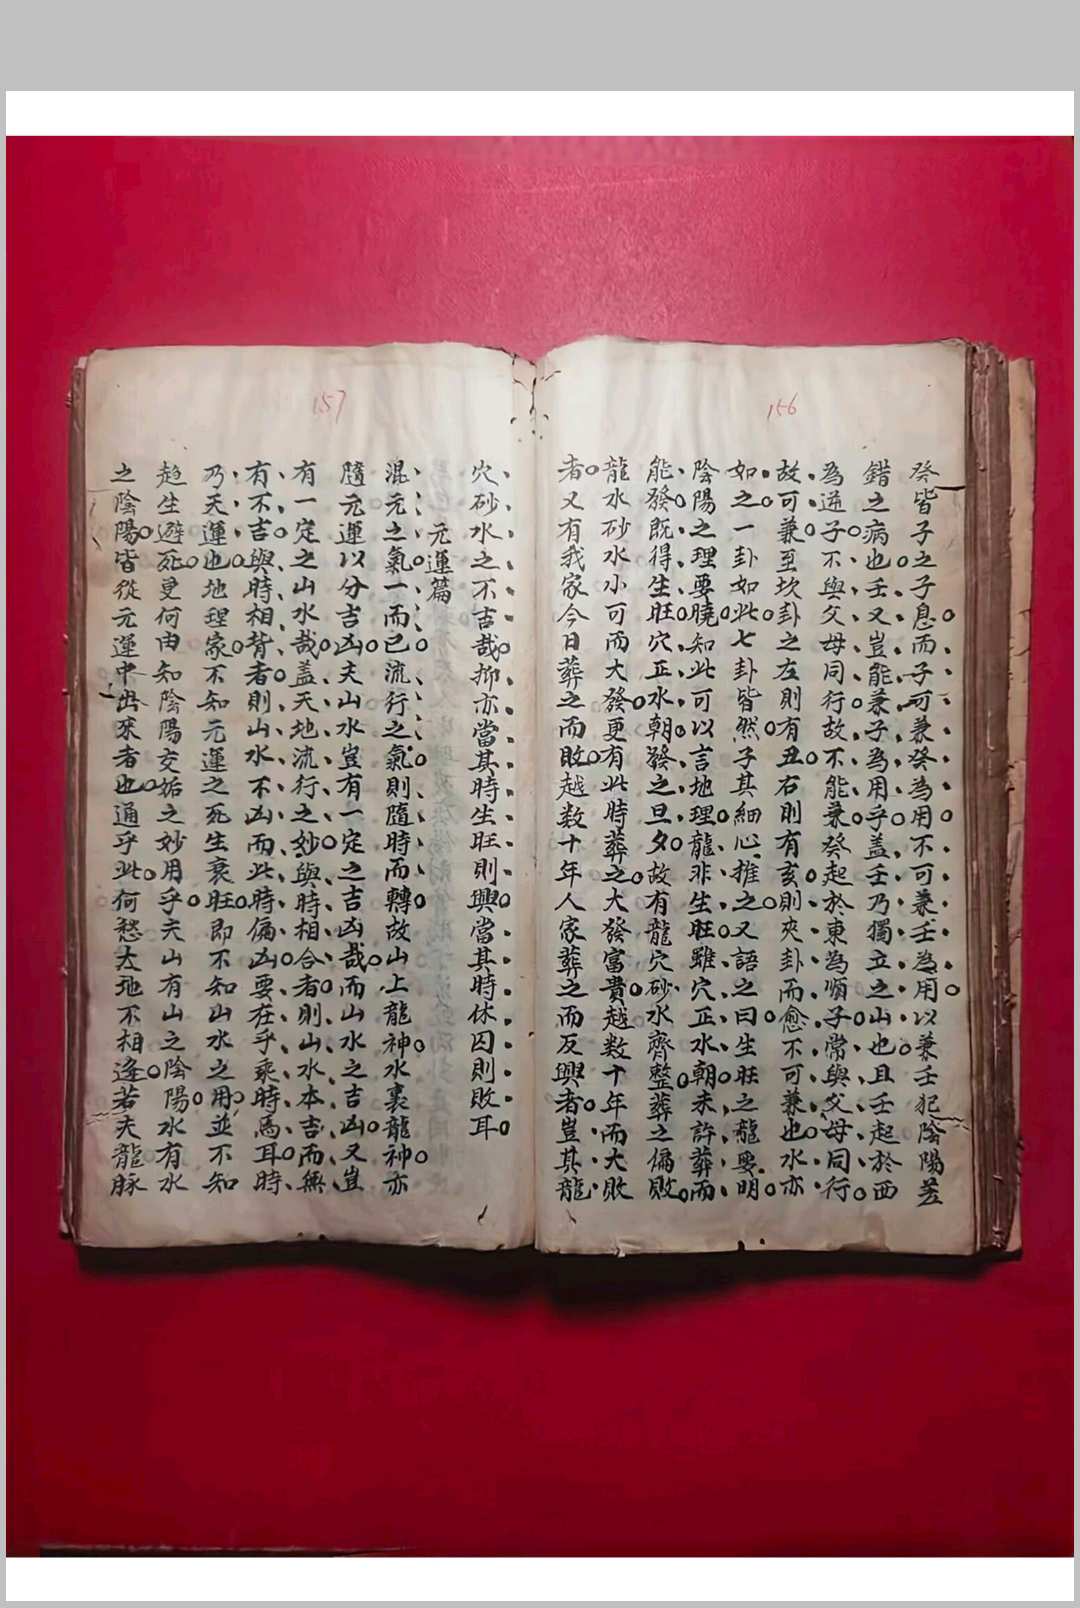 156
癸皆子之子息而子可兼癸為用不可兼壬為用以兼壬犯陰陽差
錯之病也壬又豈能兼子為用乎蓋壬乃獨立之山也且壬起於西
為逆子不與父母同行故不能兼癸起於東為順子常與父母同行
故可兼至坎卦之左則有丑右則有亥則夾卦而愈不可兼也水亦
如之一卦如此七卦皆然子其細心推之又語之曰生旺之龍要明
陰陽之理要曉知此可以言地理龍非生旺雖穴正水朝未許葬而
能發既得生旺穴正水朝發之旦夕故有龍穴砂水齊整葬之偏敗
龍水砂水小可而大發更有此時葬之大發富貴越数十年而大敗
者又有我家今日葬之而敗越数十年人家葬之而反興者豈其龍
157
穴砂水之不吉哉抑亦當其時生旺則興當其時休囚則敗耳
元運篇
混元之氣一而已流行之氣則隨時而轉故山上龍神水裏龍神亦
隨元運以分吉凶夫山水豈有一定之吉凶哉而山水之吉凶又豈
有一定之山水哉蓋天地流行之妙與時相合者則山水本吉而無
有不吉與時相背者則山水不凶而此時偏凶要在乎乘時焉耳時
乃天運也地理家不知元運之死生衰旺即不知山水之用並不知
趋生避死更何由知陰陽交姤之妙用乎夫山有山之陰陽水有水
之陰陽皆從元運中出來者也通乎此何愁大地不相逢若夫龍脉